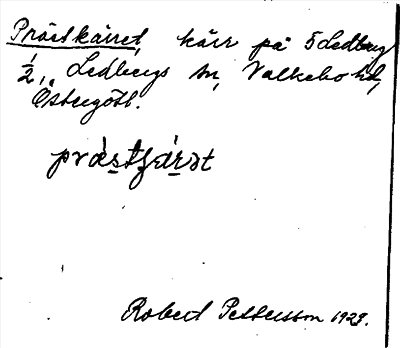 Prästkärret, kärr på 5 Ledberg
1/2, Ledbergs sn, Valkebo hd,
Östergötl.
præstʃærət
Robert Pettersson 1929.